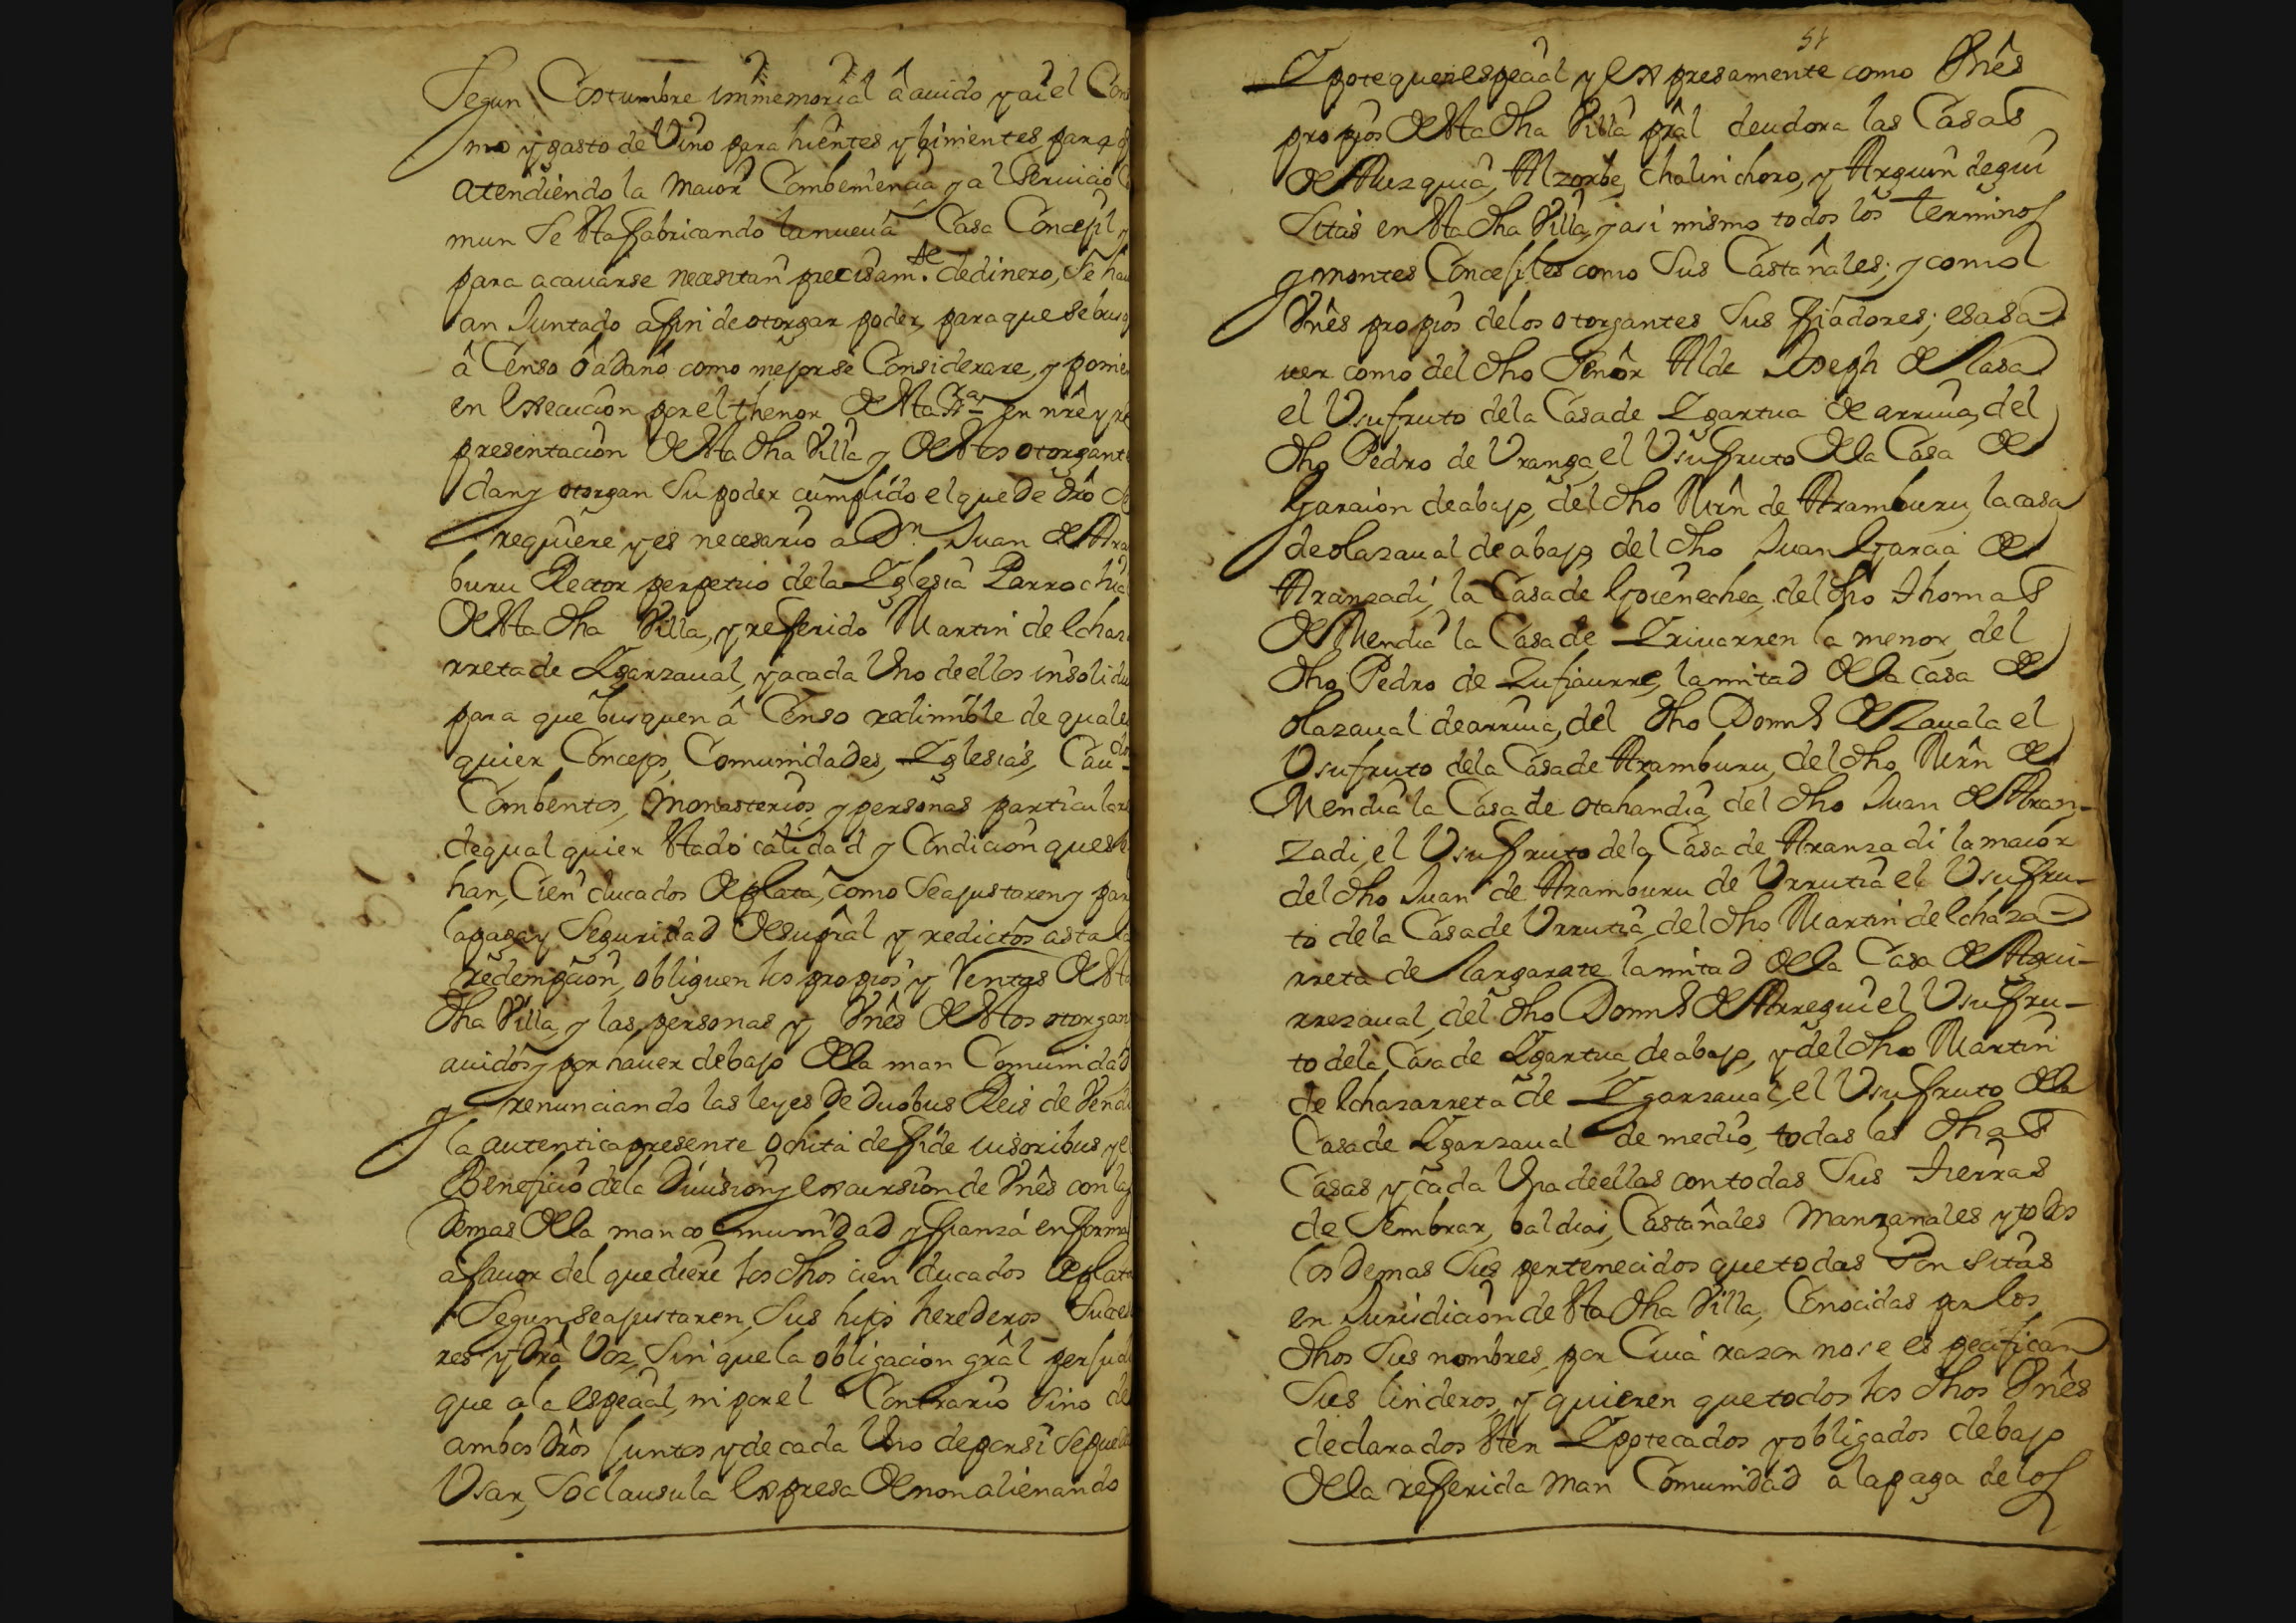 Segun Costumbre immemorial â auido y ai el Con
mo y gasto de Vino para hientes y binientes, para q
atendiendo la maior Combeniencia y al Seruicio
mun Se esta fabricando la nueua Casa Concejil y
para acauarse necesitan precisam.te de dinero, Se hau
an Juntado a fin de otorgar poder, para que se busq
â Censo ô â Daño como mejor se Considerare, y ponien
en execucion por el thenor de esta Cra en nrê y re
presentacion de esta dha Villa y de estos otorgant
dan y otorgan Su poder cumplido el que de drô Se
requiere y es necesario a Dn Juan de Ara
buru Rector perpetuo de la Iglesia Parrochia
de esta dha Villa, y referido Martin de Echaza
rreta de Igarzaual, y a cada Uno de ellos insolidu
para que busquen â Censo redimible de quales
quier Concejos, Comunidades, Iglesias, Cau.dos
Combentos, Monasterios, y personas particulare
de qual quier estado calidad y Condicion que se
han, Cien ducados de plata, como Se ajustaren y par
la paga y Seguridad de su prâl y redictos asta la
redempcion, obliguen los propios y Rentas de esta
dha Villa, y las personas y Vnês de estos otorgan
auidos y por hauer debajo de la man Comunidad
y renunciando las leyes de Duobus Reis de Vendi
la autentica presente ochita de fide iusoribus y el
Beneficio de la Diuision y excursion de Vnês con las
demas de la mancomunidad y fianza en forma
a fauor del que diere los dhos cien ducados de plata
Segun se ajustaren, Sus hijos herederos Suces
res y drâ Voz, Sin que la obligacion grâl perjud
que a la especial, ni por el Contrario Sino de
ambos drôs Juntos y de cada Uno de por si Se pueda
Usar, So clausula expresa de non alienando
51
Ypotequen especial y expresamente como Vnês
propios de esta dha Villa prâl deudora las Casas
de Auzquia, Alzorbe, Chalinchoro, y Arguin degui
Sitas en esta dha Villa, y asi mismo todos los terminos
y montes Concejiles como Sus Castañales; y como
Vnês propios de los otorgantes Sus fiadores; es a sa
uer como del dho Señor Alde Joseph de Lasa
el Usufruto de la Casa de Igartua de arriua, del
dho Pedro de Uranga, el Usufruto de la Casa de
Garaion de abajo, del dho Mrñ de Aramburu, la casa
de olazaual de abajo, del dho Juan Garcia de
Aranzadi, la Casa de Goienechea, del dho Thomas
de Mendia la Casa de Iriuarren la menor, del
dho Pedro de Zufiaurre, la mitad de la casa de
olazaual de arriua, del dho Domns de Zauala el
Usufruto de la Casa de Aramburu, del dho Mrñ de
Mendia la Casa de otahandia, del dho Juan de Aran-
zadi, el Usufruto de la Casa de Aranzadi la maior
del dho Juan de Aramburu de Urrutia el Usufru-
to de la Casa de Urrutia, del dho Martin de Echaza
rreta de Langarate, la mitad de la Casa de Agui-
rrezaual, del dho Domns de Arregui el Usufru-
to de la Casa de Igartua de abajo, y del dho Martin
de Echazarreta de Igarzaual, el Usufruto de la
Casa de Igarzaual de medio, todas las dhas
Casas y cada Una de ellas con todas Sus tierras
de Sembrar, baldias, Castañales Manzanales y todos
los Demas Sus pertenecidos que todas Son sitas
en Jurisdicion de esta dha Villa, Conocidas por los
dhos Sus nombres, por Cuia razon no se especifican
Sus linderos, y quieren que todos los dhos Vnês
declarados esten Ypotecados y obligados debajo
de la referida man Comunidad a la paga de los